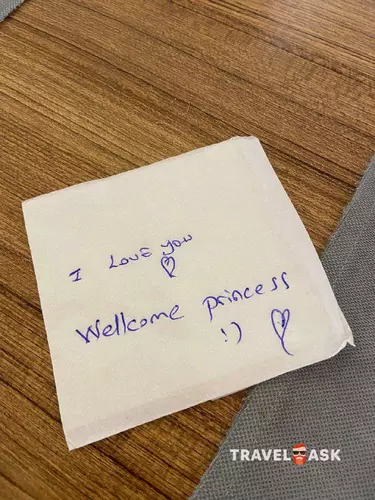 I LOVE you
Wellcome princess
:)
TRAVEL ASK